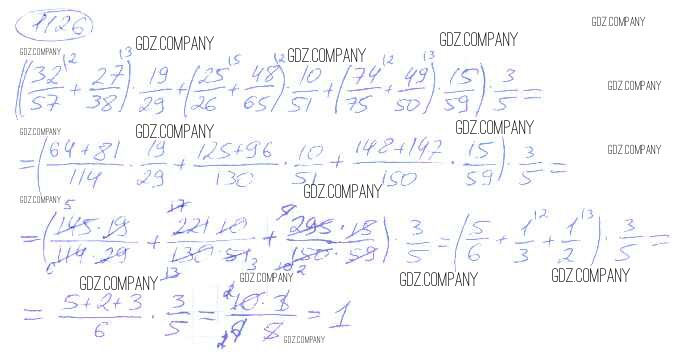 1126
GDZ.COMPANY
GDZ.COMPANY GDZ.COMPANY GDZ.COMPANY GDZ.COMPANY
((32/57 + 27/38) · 19/29 + (25/26 + 48/65) · 10/51 + (74/75 + 49/50) · 15/59) · 3/5 =
GDZ.COMPANY
GDZ.COMPANY GDZ.COMPANY GDZ.COMPANY
= (64+81/114 · 19/29 + 125+96/130 · 10/51 + 148+147/150 · 15/59) · 3/5 =
GDZ.COMPANY
GDZ.COMPANY GDZ.COMPANY
= (145·19/114·29 + 221·10/130·51 + 295·15/150·59) · 3/5 = (5/6 + 1/3 + 1/2) · 3/5 =
GDZ.COMPANY GDZ.COMPANY GDZ.COMPANY GDZ.COMPANY
= 5+2+3/6 · 3/5 = 10·3/6·5 = 1
GDZ.COMPANY